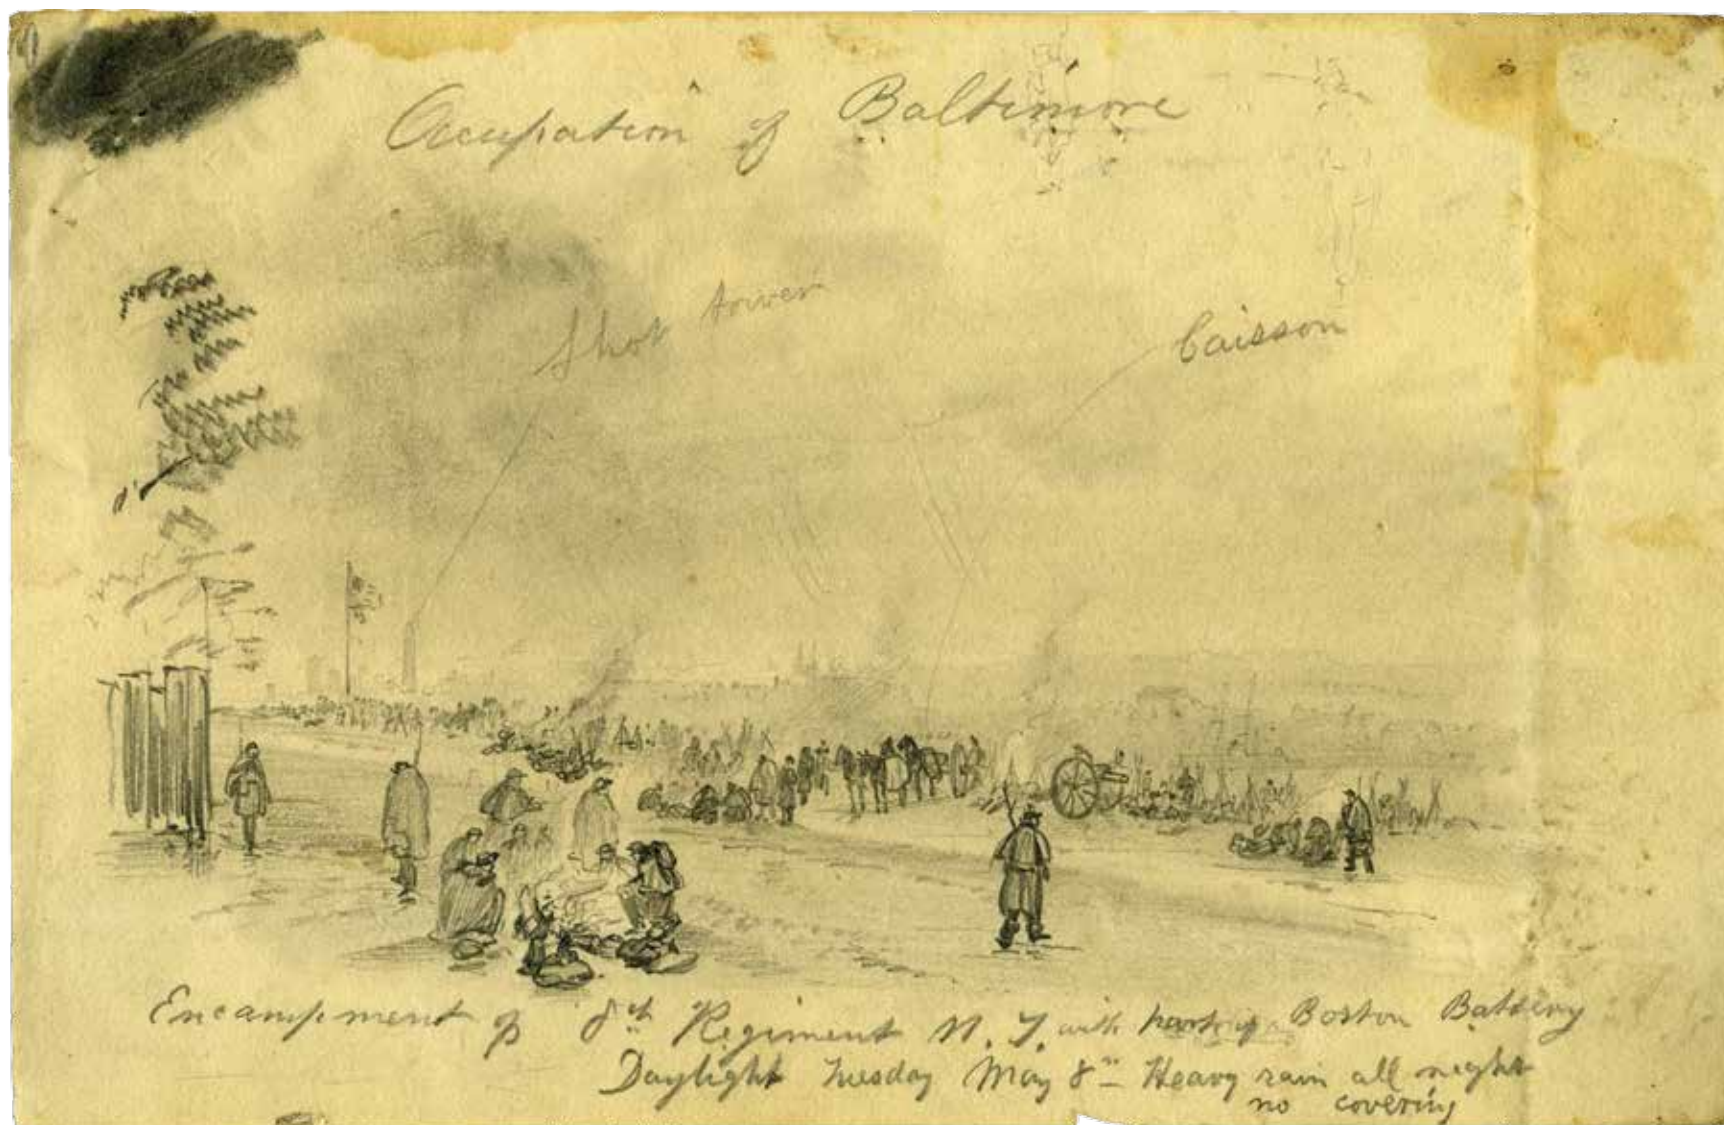 Occupation of Baltimore
Shot tower
Caisson
Encampment of 8th Regiment N. Y. with part of Boston Battery
Daylight Tuesday May 8th Heavy rain all night
no covering